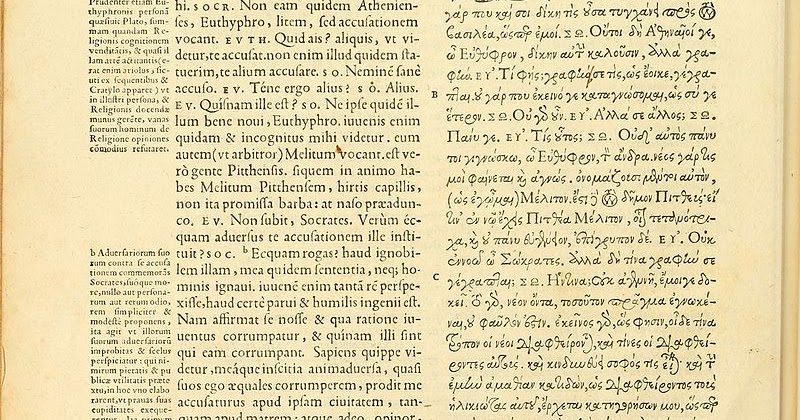 Prudenter etiam Eu-
thyphronis personã
quæsiuit Plato, sum-
mam quandam Re-
ligionis cognitionem
venditãtis, & quasi il
lam artẽ actitantis (e-
rat enim ariolus, sic-
uti ex sequentibus &
Cratylo apparet) vt
in illustri persona, &
Religionis docendæ
munus gerẽte, vanas
suorum hominum de
Religione opiniones
cõmodius refutaret.
b Aduersariorum suo
rum contra se accusa
tionem commemorãs
Socrates, suóque mo-
re, nullo aut persona-
rum aut rerum odio,
rem simpliciter &
modestè proponens,
ita agit vt illorum
suorum aduersariorũ
improbitas & scelus
perspiciatur: qui ni-
mirum pietatis & pu
blicæ vtilitatis præte
xtu, in hoc vno elabo
rarent, vt prauas suas
cupiditates exeque-
hi. SOCR. Non eam quidem Athenien-
ses, Euthyphro, litem, sed accusationem
vocant. EVTH. Quid ais? aliquis, vt vi-
detur, te accusat. non enim illud quidem sta-
tuerim, te alium accusare. SO. Neminẽ sanè
accuso. EV. Téne ergo alius? SO. Alius.
EV. Quisnam ille est? SO. Ne ipse quidẽ il-
lum bene noui, Euthyphro. iuuenis enim
quidam & incognitus mihi videtur. eum
autem (vt arbitror) Melitum vocant. est ve-
rò gente Pitthensis. siquem in animo ha-
bes Melitum Pitthensem, hirtis capillis,
non ita promissa barba: at naso præadun-
co. EV. Non subit, Socrates. Verùm ec-
quam aduersus te accusationem ille insti-
tuit? SOC. b Ecquam rogas? haud ignobi-
lem illam, mea quidem sententia, neq; ho-
minis ignaui. iuuenẽ enim tantã rẽ perspe-
xisse, haud certè parui & humilis ingenii est.
Nam affirmat se nosse & qua ratione iu-
uentus corrumpatur, & quinam illi sint
qui eam corrumpant. Sapiens quippe vi-
detur, meáque inscitia animaduersa, quasi
suos ego æquales corrumperem, prodit me
accusaturus apud ipsam ciuitatem, tan-
quam apud matrem: atque adeo, opinor
γάρ που καὶ σοι δίκη τις οὖσα τυγχάνει πρὸς τὸν
βασιλέα, ὥσπερ ἐμοί. ΣΩ. Οὔτοι δὴ Ἀθηναῖοί γε,
ὦ Εὐθύφρον, δίκην αὐτὴν καλοῦσιν, ἀλλὰ γρα-
φήν. ΕΥ. Τί φής; γραφήν σέ τις, ὡς ἔοικε, γέγρα-
B
πται. οὐ γάρ που ἐκεῖνό γε καταγνώσομαι, ὡς σύ γε
ἕτερον. ΣΩ. Οὐ γὰρ οὖν. ΕΥ. Ἀλλά σε ἄλλος; ΣΩ.
Πάνυ γε. ΕΥ. Τίς οὗτος; ΣΩ. Οὐδ' αὐτὸς πάνυ
τοι γιγνώσκω, ὦ Εὐθύφρον, τὸν ἄνδρα. νέος γάρ τις
μοι φαίνεται καὶ ἀγνώς. ὀνομάζουσι μέντοι αὐτὸν,
(ὡς ἐγῷμαι) Μέλιτον. ἔστι δὲ τῶν δήμων Πιτθεύς· εἴ
τιν' ἐν νῷ ἔχεις Πιτθέα Μέλιτον, οἷον τετανότρι-
χα, καὶ οὐ πάνυ εὐγένειον, ἐπίγρυπον δέ. ΕΥ. Οὐκ
ἐννοῶ ὦ Σώκρατες. ἀλλὰ δὴ τίνα γραφήν σε
C
γέγραπται; ΣΩ. Ἥντινα; οὐκ ἀγεννῆ, ἔμοιγε δο-
κεῖ. τὸ γὰρ, νέον ὄντα, τοσοῦτον πρᾶγμα ἐγνωκέ-
ναι, οὐ φαῦλόν ἐστιν. ἐκεῖνος γὰρ, ὥς φησιν, οἶδε τίνα
τρόπον οἱ νέοι διαφθείρονται, καὶ τίνες οἱ διαφθεί-
ροντες αὐτούς. καὶ κινδυνεύει σοφός τις εἶναι. καὶ τὴν
ἐμὴν ἀμαθίαν κατιδὼν, ὡς διαφθείροντος τοὺς
ἡλικιώτας αὐτοῦ, ἔρχεται κατηγορήσων μου, ὥσπερ